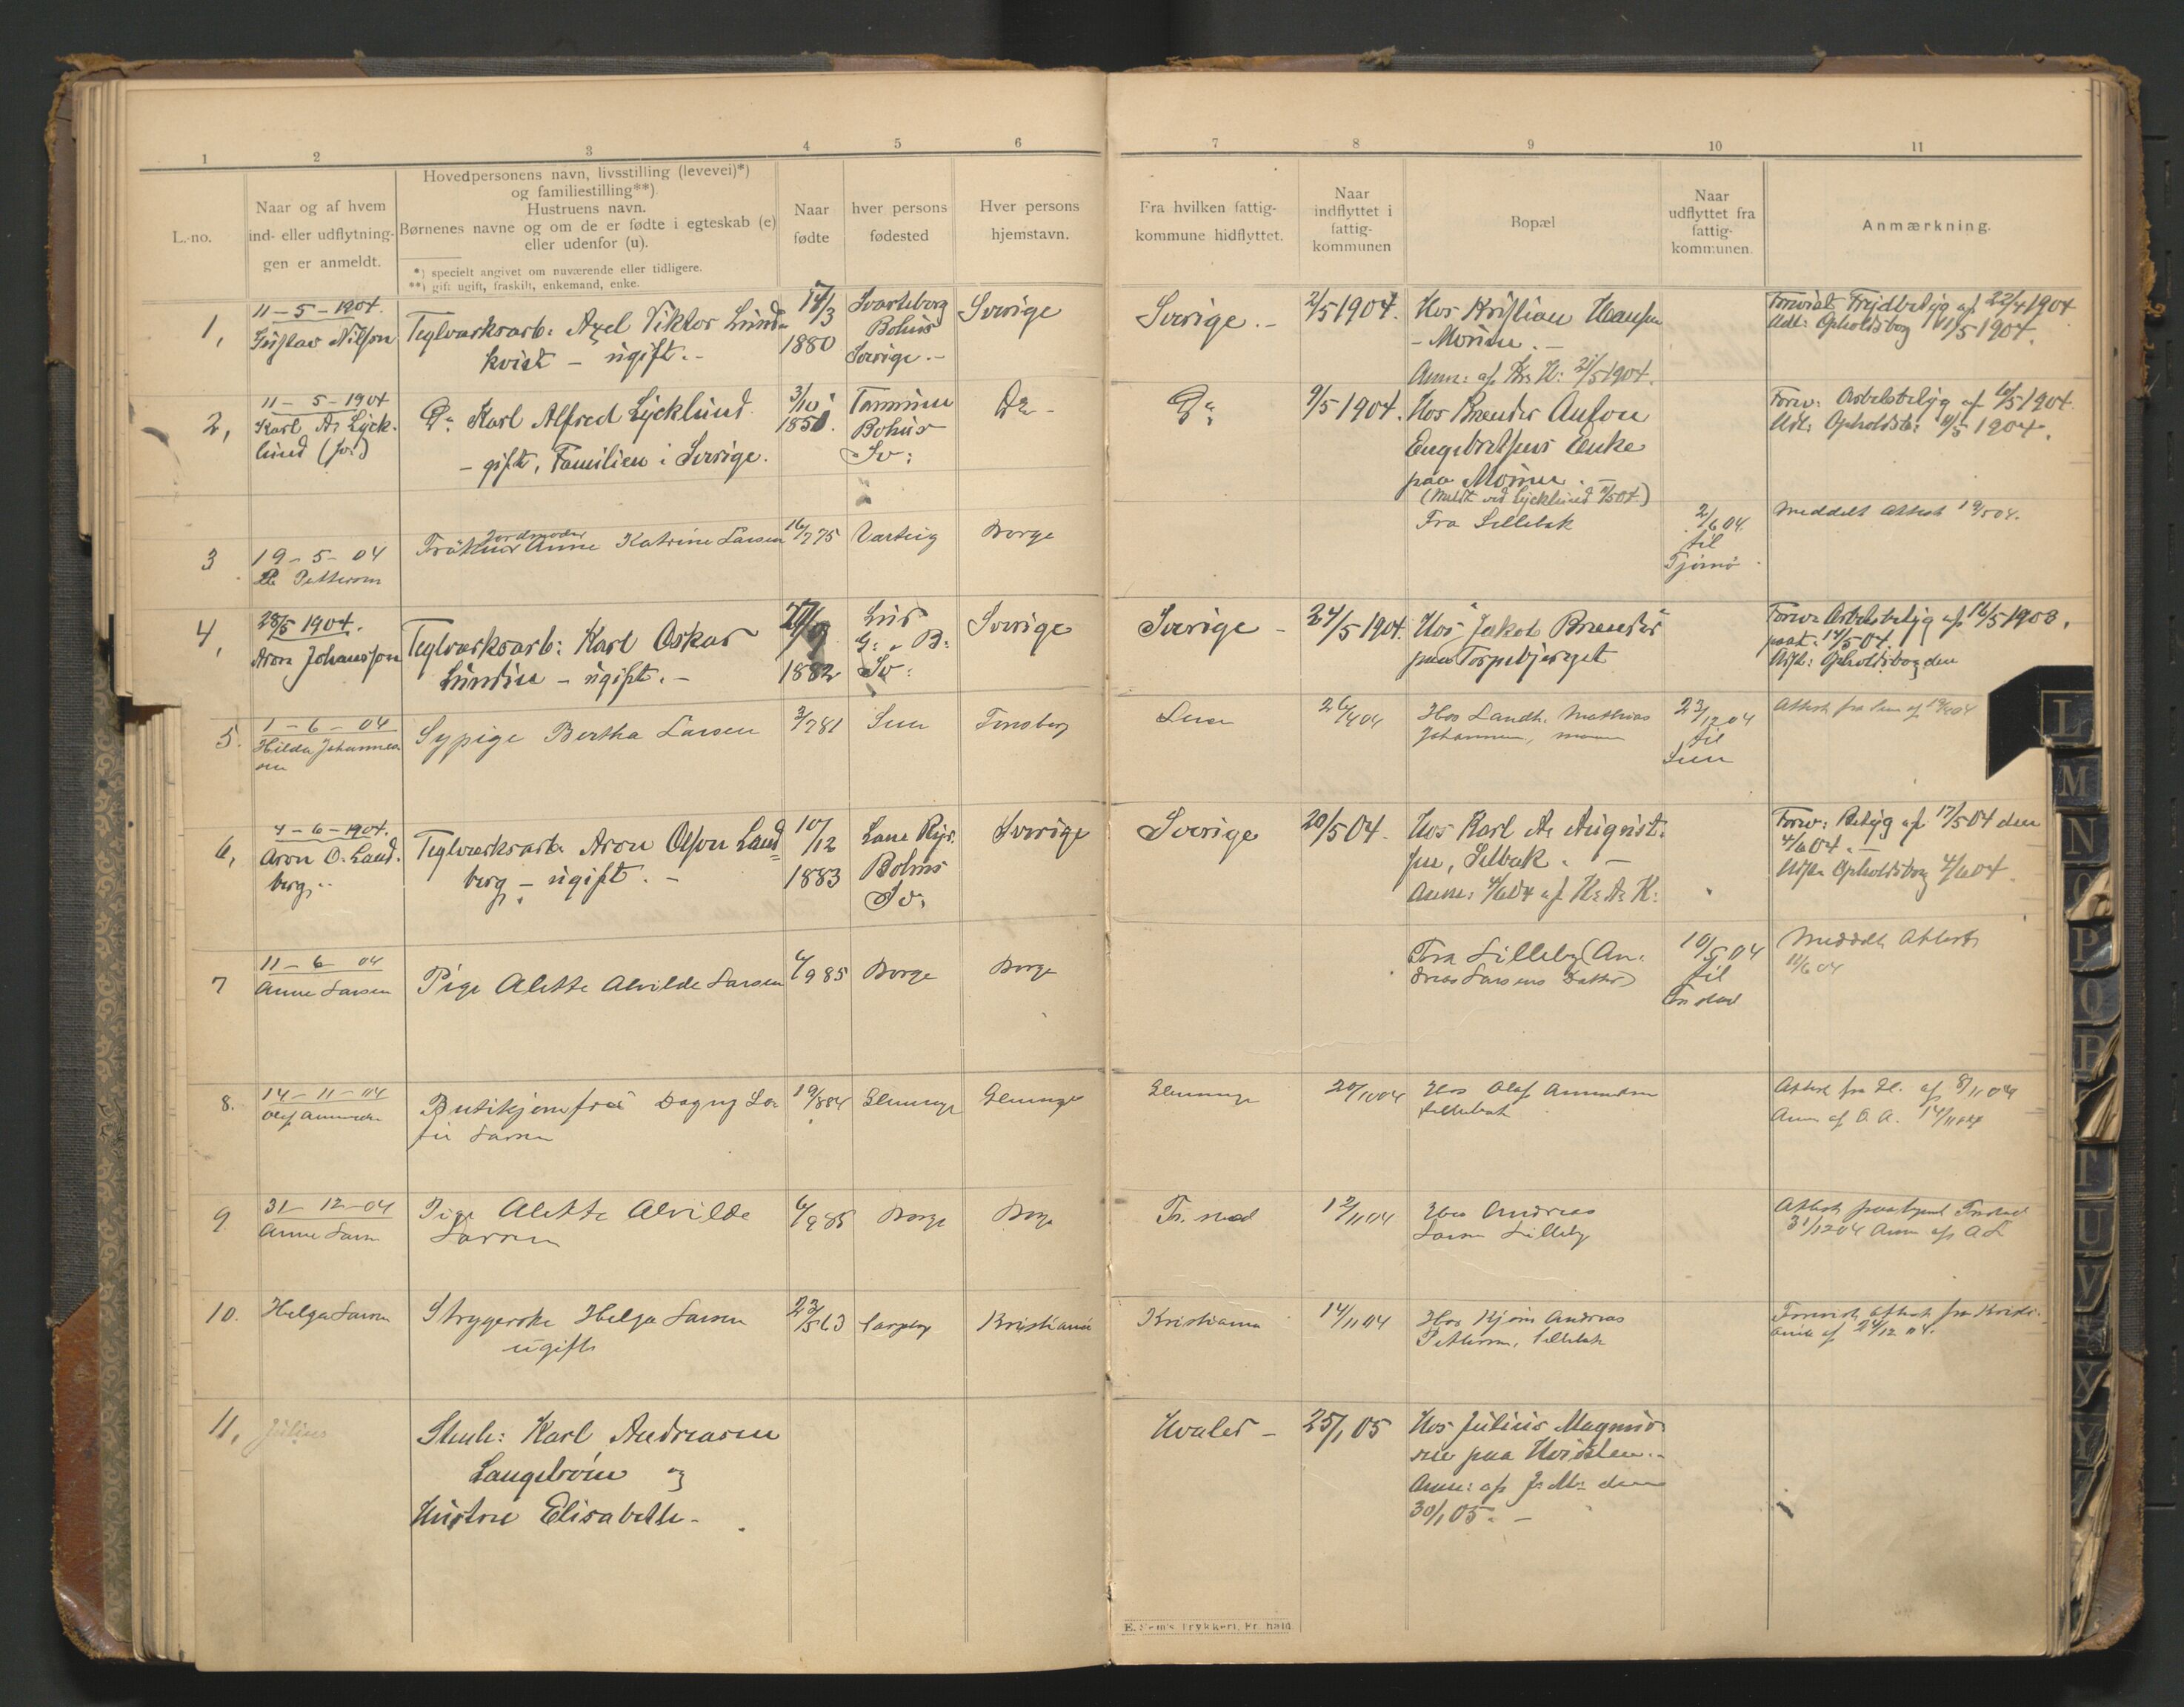 1 2 3 4 5 6 7 8 9 10 11
L.-no.
Naar og af hvem
ind- eller udflytnin-
gen er anmeldt.
Hovedpersonens navn, livsstilling (levevei)*)
og familiestilling**)
Hustruens navn.
Børnenes navne og om de er fødte i egteskab (e)
eller udenfor (u).
*) specielt angivet om nuværende eller tidligere.
**) gift ugift, fraskilt, enkemand, enke.
Naar
fødte
hver persons
fødested
Hver persons
hjemstavn.
Fra hvilken fattig-
kommune hidflyttet.
Naar
indflyttet i
fattig-
kommunen
Bopæl
Naar
udflyttet fra
fattig-
kommunen.
Anmærkning.
1,
11-5-1904.
Gustav Nilsson
Teglværksarb: Axel Viktor Lund-
kvist - ugift.-
17/3
1880
Svarteborg
Bohus
Sverige.-
Sverige
Sverige.-
2/5 1904.
Hos Kristian Hansen
- Moum.-
Anm: af Kr. H: 21/5 1904.
Forevist Frejdbetyg af 22/4 1904
Udl: Opholdsbog 11/5 1904.
2,
11-5-1904
Karl A. Lyck-
lund (sv:)
Do Karl Alfred Lycklund
- gift, Familien i Sverige.
3/10
1850
Tannum
Bohus
Sv:
Do -
Do
9/5 1904.
Hos Brænder Anton
Engebretsens Enke
paa Moum.-
(Meldt ved Lycklund 11/5 04)
Forev: Arbetsbetyg af 10/5 1904.
Udl: Opholdsb: 11/5 1904.
3
19-5-04
Petterson
Jordmoder
Frøken Anne Katrine Larsen
16/7 75
Varteig
Borge
Fra Sellebak
2/6 04
til
Tjømø
Meddelt Attest 19/5 04.
4,
28/5 1904.
Aron Johansson
Teglværksarb: Karl Oskar
Lundin - ugift.-
1882
Lur
G: o B:
Sv:
Sverige
Sverige -
24/5 1904.
Hos Jakob Brænder
paa Torpebjerget
Forev: Arbetsbetyg af 16/5 1903,
paat. 14/5 04.
Udst: Opholdsbog den
5.
1-6-04
Hilda Johannes
sen
Sypige Bertha Larsen
3/7 81
Sem
Tønsberg
Sem
26/4 04
Hos Landh. Mathias
Johannesen, Moum
23/12 04
til
Sem
Attest fra Sem af 04
6,
4-6-1904.
Aron O. Land-
berg..
Teglværksarb. Aron Olson Land=
berg - ugift.-
10/12
1883
Lane Ryr.
Bohus
Sv:
Sverige
Sverige
20/5 04.
Hos Karl A. Auqvist-
sen, Selbak.-
Anm: 4/6 04 af K: A: K:
Forev: Betyg af 17/5 04 den
4/6 04.-
Udst. Opholdsbog 4/6 04.
7
11-6-04
Anne Larsen
Pige Alette Alvilde Larsen
6/9 85
Borge
Borge
Fra Lilleby (An-
dreas Larsens Datter)
10/5 04
til
Fr.stad
Meddelt Attest
11/6 04
8.
14-11-04
Olaf Amundsen
Butikjomfru Dagny Lo-
Larsen
19/8 84
Glemminge
Glemminge
Glemminge
20/10 04
Hos Olaf Amundsen
Sellebak
Attest fra Gl. af 8/11 04
Anm af O. A. 14/11 04
9.
31-12-04
Anne Larsen
Pige Alette Alvilde
Larsen
6/9 85
Borge
Borge
Fr.stad
12/11 04
Hos Andreas
Larsen Lilleby
Attest fra Fr.stad
31/12 04 Anm af A L
10.
Helga Larsen
Strygerske Helga Larsen
ugift
23/5 63
Sarpsborg
Kristiania
Kristiania
14/11 04
Hos Andreas
Pettersen, Sellebak
Forevist Attest fra Kristi-
ania af 24/12 04.
11,
Julius
Stenh: Karl Andreasen
Langebrøen og
Hustru Elisabeth-
Hvaler -
25/1 05
Hos Julius Magnus-
sen paa Hvidsten.-
Anm: af J: M: den
30/1 05.-
E. Sem's Trykkeri, Fr. hald
L M N O P Q R T U V X Y